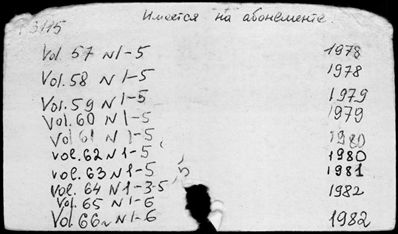 Имеется на абонементе.
Vol. 57 N 1-5 1978
Vol. 58 N 1-5 1978
Vol. 59 N 1-5 1979
Vol. 60 N 1-5 1979
Vol 61 N 1-5 1980
vol. 62 N 1-5 1980
vol. 63 N 1-5 1981
vol. 64 N 1-3-5 1982
Vol. 65 N 1-6
Vol 66 N 1-6 1982